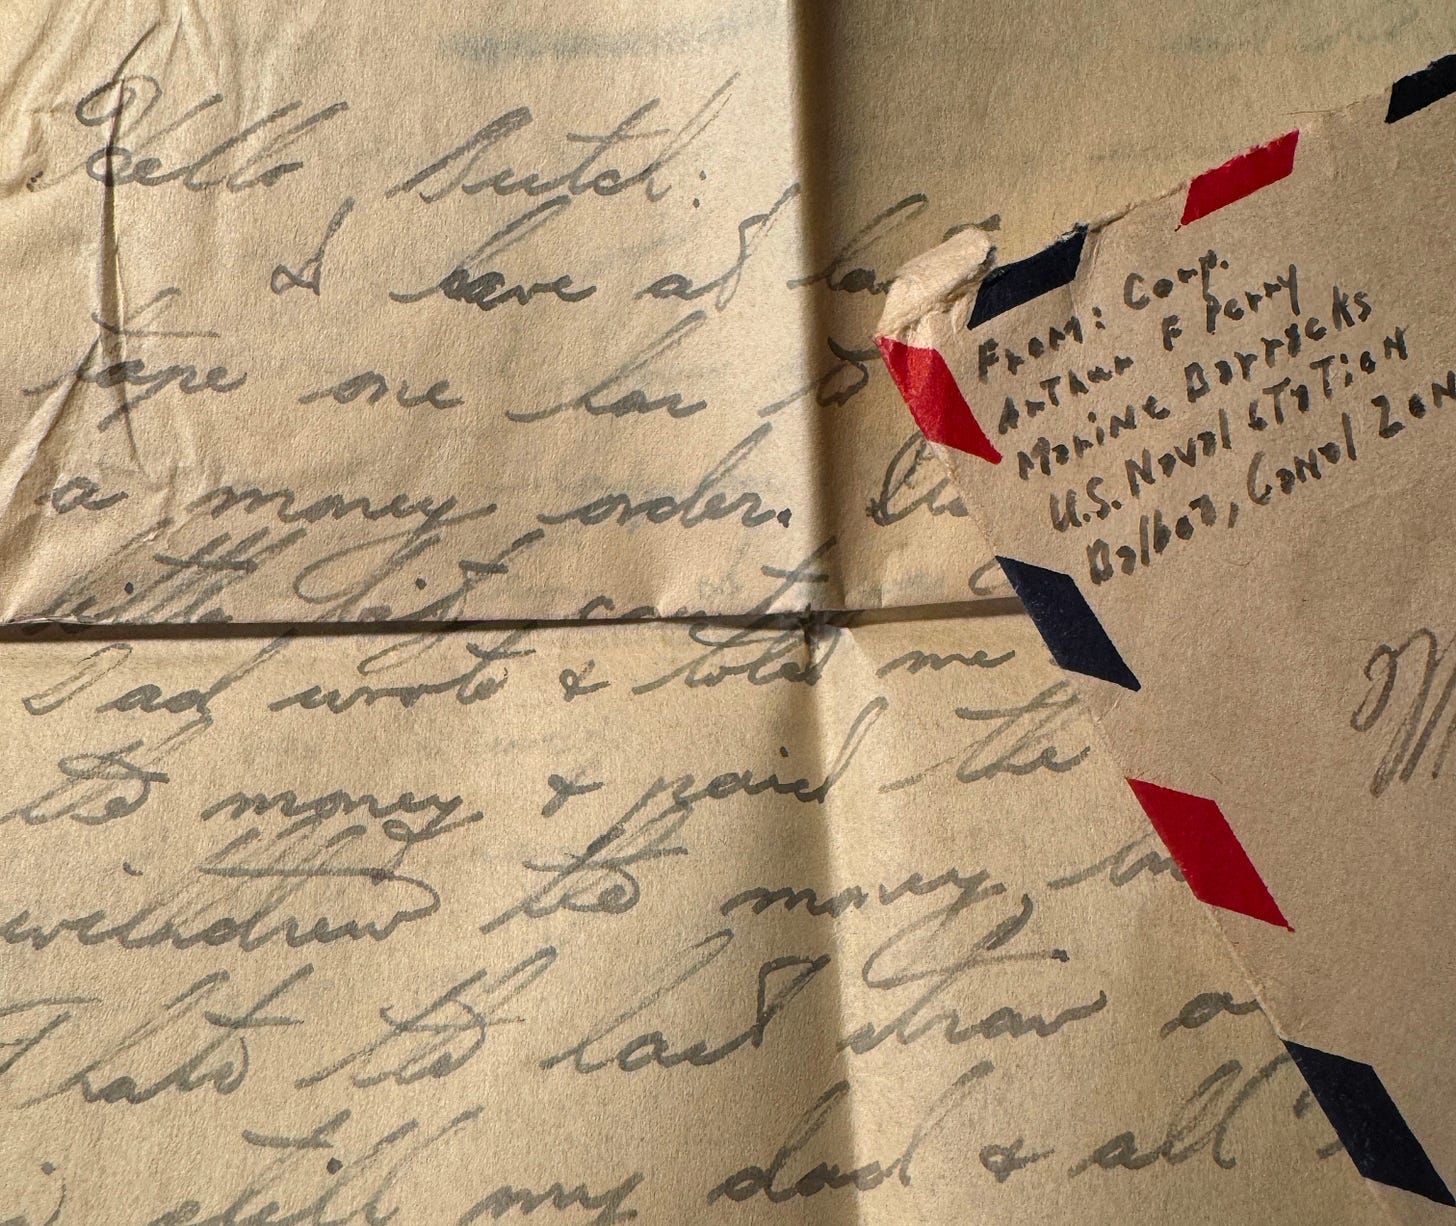 Hello Butch:
I have at
tape one has to
a money order.
little bit
Dad wrote & told me
the money & paid the
withdrew the money, in
Thats the last straw
still my dad & all
From: Corp.
Arthur F Perry
Marine Barracks
U.S. Naval Station
Balboa, Canal Zon
M